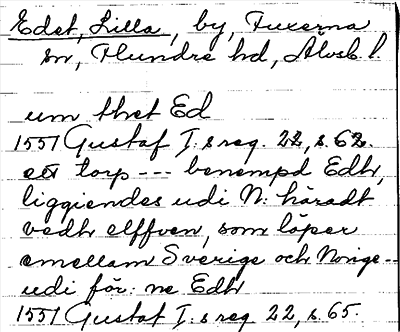 Edet, Lilla, by, Fuxerna
sn, Flundre hd, Älvsb. l.
um thet Ed
1551 Gustaf I:s reg. 22, s. 62.
ett torp --- benempd Edh,
liggiendes udi N: häradt
vedh elffven, som löper
emellam Sverige och Norige --
udi för: ne Edh
1551 Gustaf I:s reg 22, s. 65.